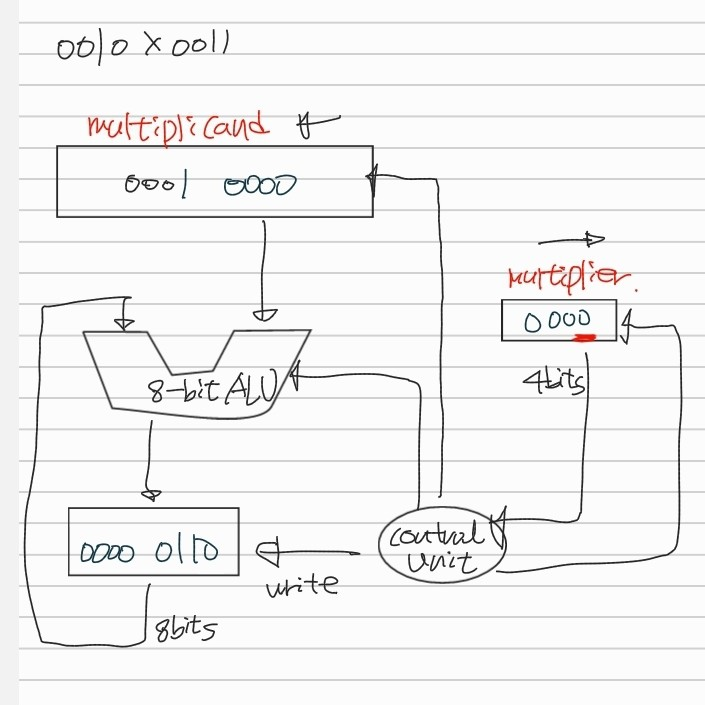 0010 × 0011
multiplicand
0001 0000
multiplier.
0000
4bits
8-bit ALU
control
unit
0000 0110
write
8bits